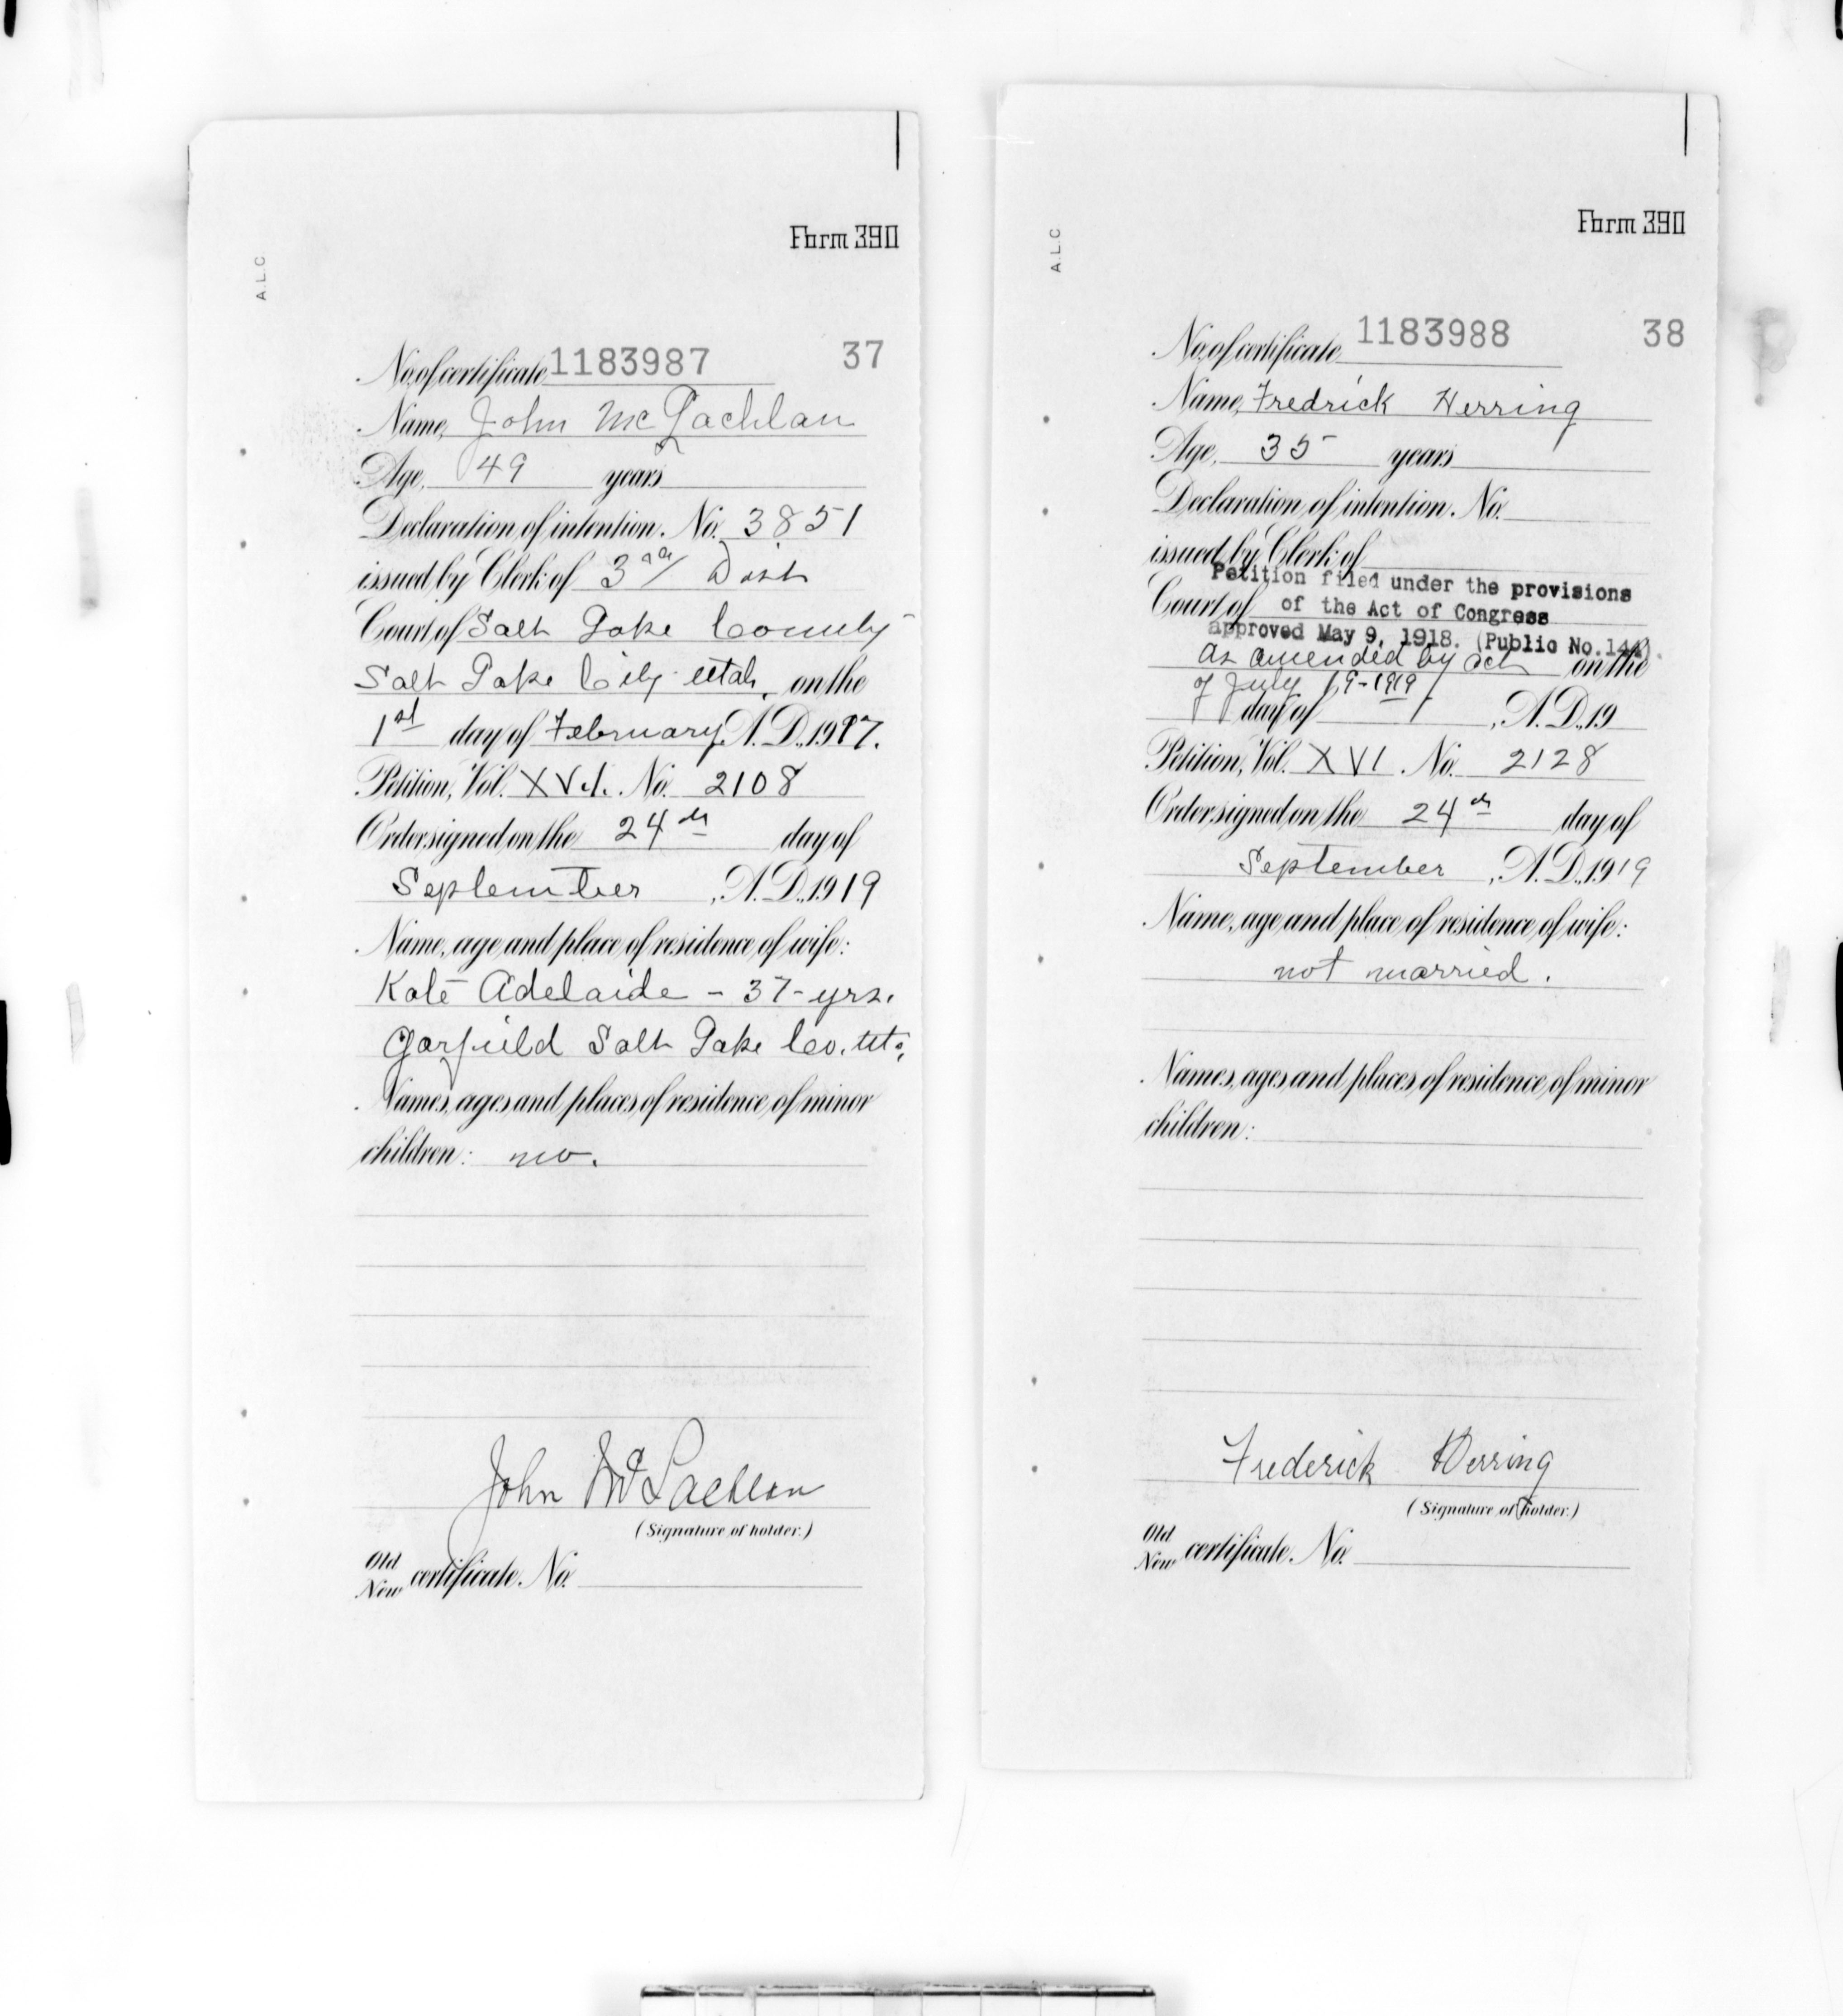 Form 390
A.L.C
37
No. of certificate 1183987
Name, John McLachlan
Age, 49 years
Declaration of intention. No. 3851
issued by Clerk of 3rd Dist
Court of Salt Lake County
Salt Lake City Utah, on the
1st day of February, A.D., 1917.
Petition, Vol. XVI. No. 2108
Order signed on the 24th day of
September, A.D., 1919
Name, age and place of residence of wife:
Kate Adelaide - 37 - yrs.
Garfield Salt Lake Co. Ut.
Names, ages and places of residence of minor
children: no.
John McLachlan
(Signature of holder.)
Old
New certificate. No.
Form 390
A.L.C
38
No. of certificate 1183988
Name, Fredrick Herring
Age, 35 years
Declaration of intention. No.
issued by Clerk of
Petition filed under the provisions
Court of of the Act of Congress
approved May 9, 1918. (Public No. 144).
as amended by act on the
of July 19-1919
day of , A.D., 19
Petition, Vol. XVI. No. 2128
Order signed on the 24th day of
September, A.D., 1919
Name, age and place of residence of wife:
not married.
Names, ages and places of residence of minor
children:
Frederick Herring
(Signature of holder.)
Old
New certificate. No.